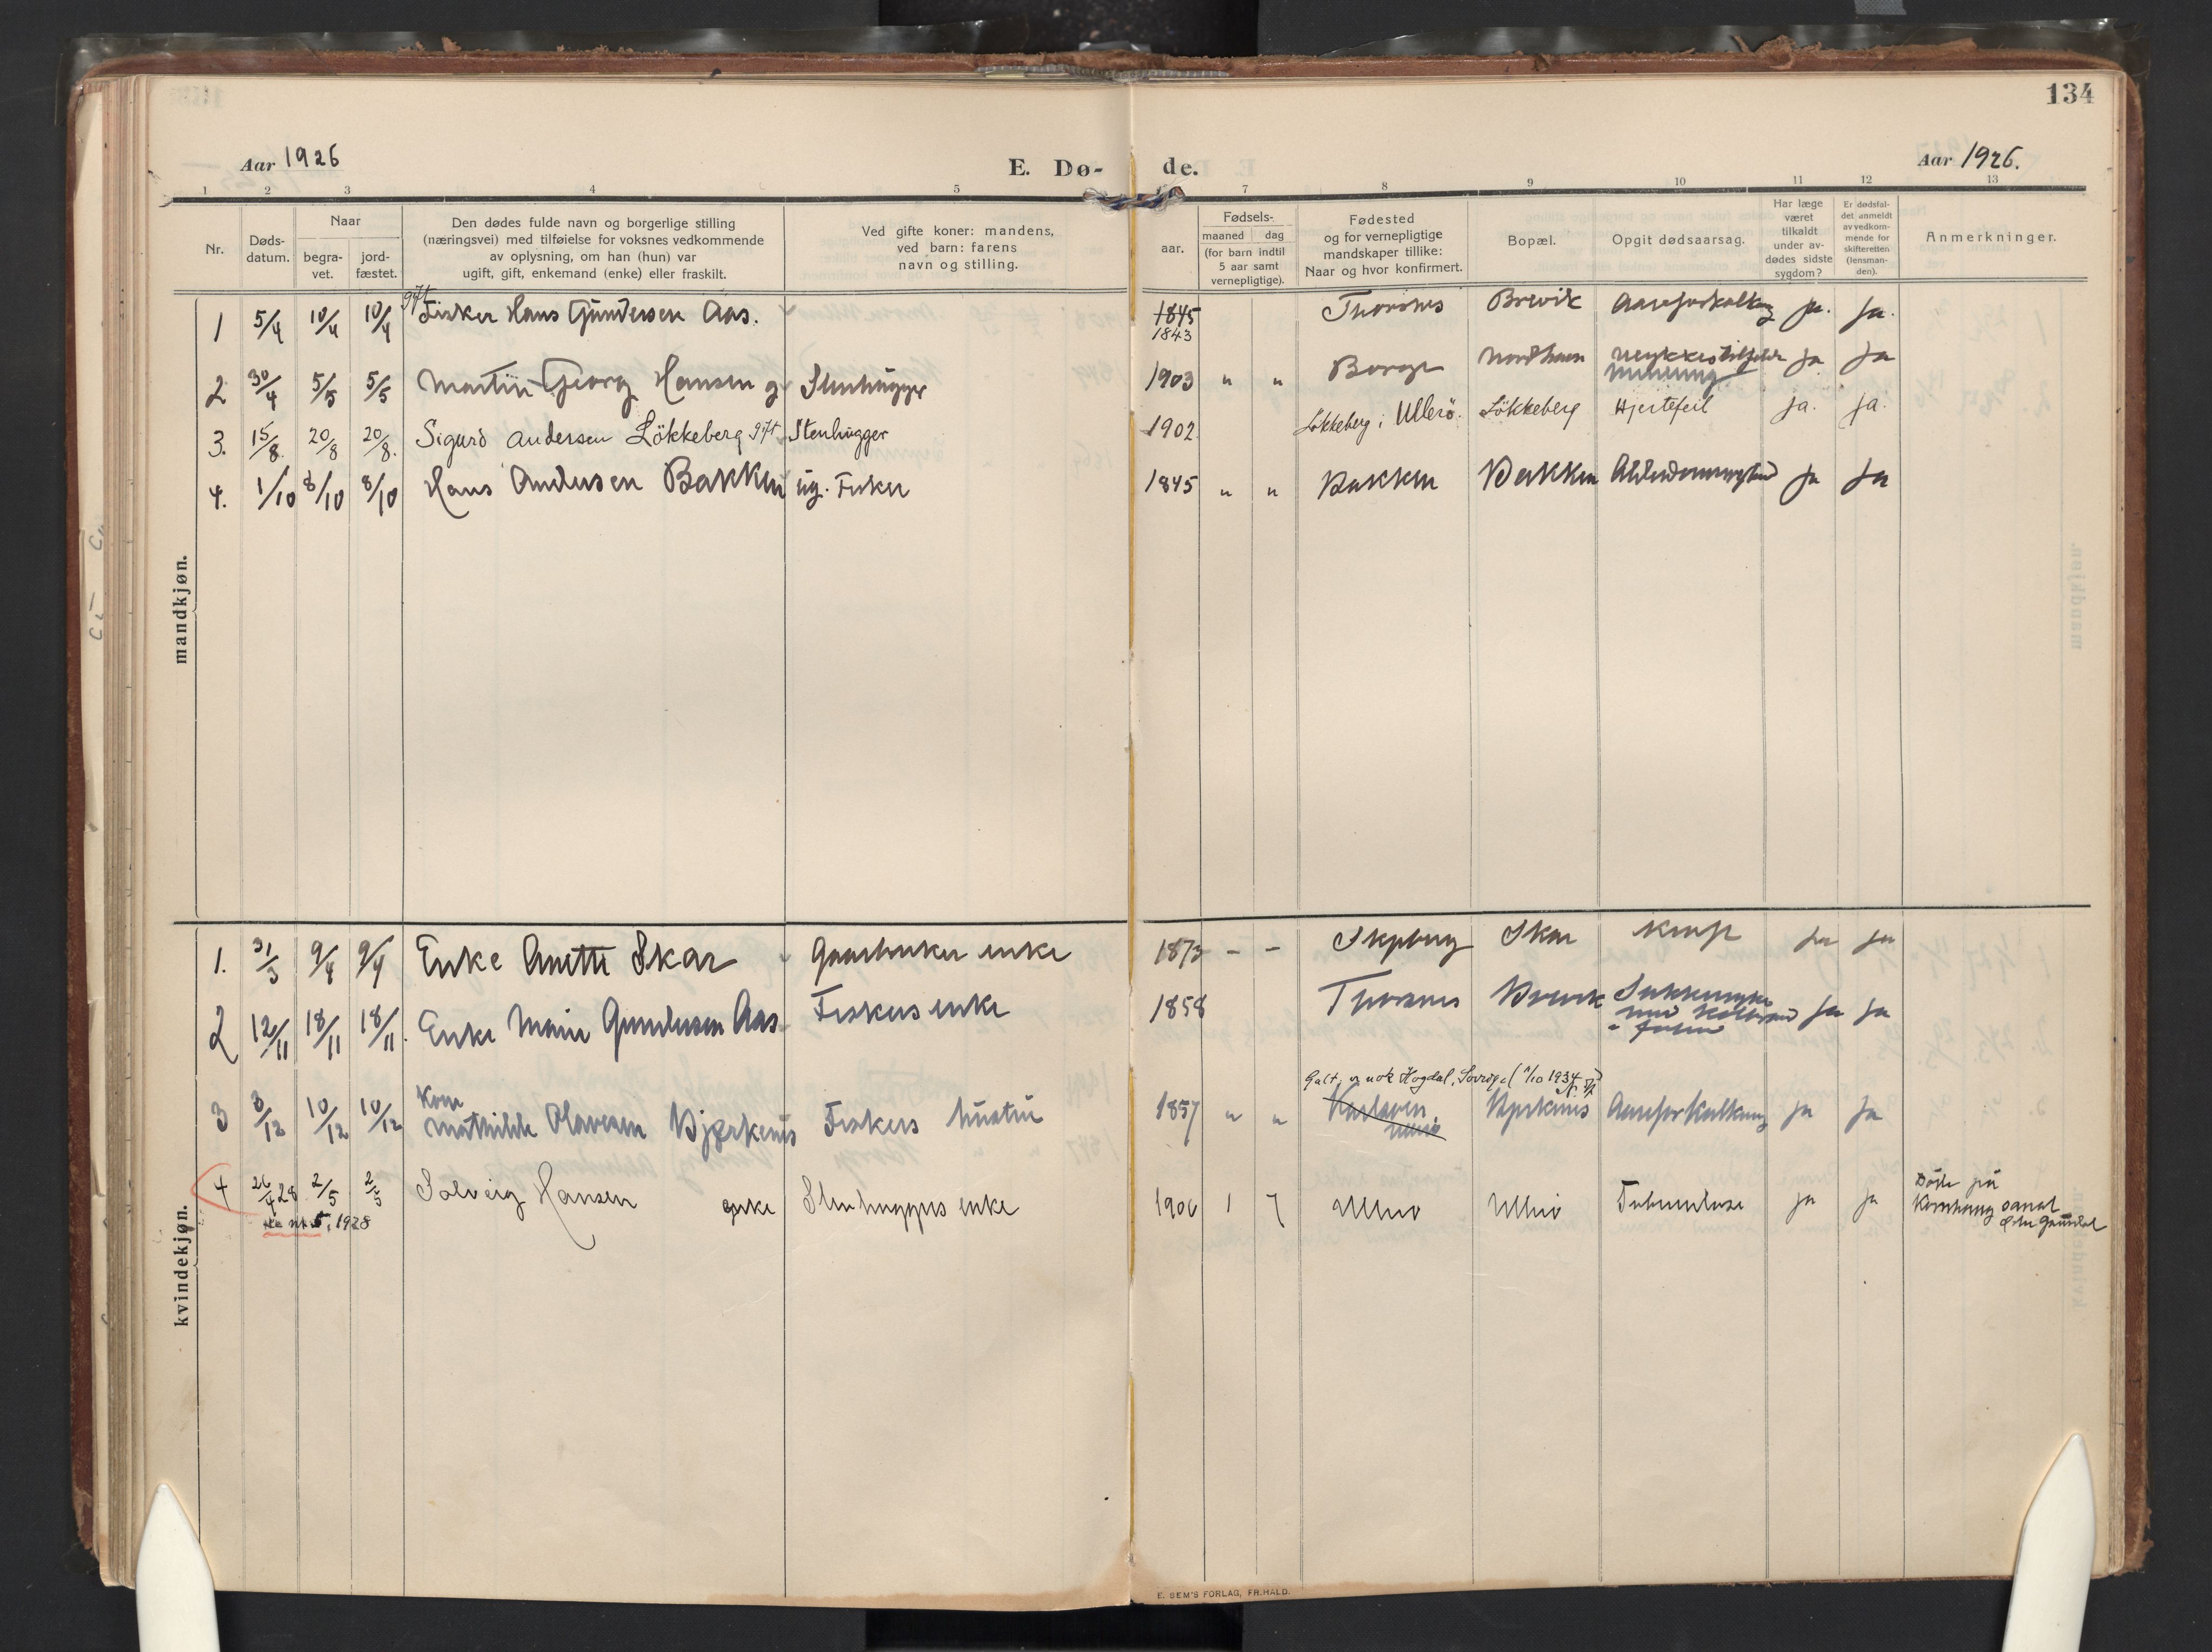 134
Aar 1926
E. Dø-
de.
Aar 1926.
1 2 3 4 5 7 8 9 10 11 12 13
Nr.
Døds-
datum.
Naar
begra-
vet.
jord-
fæstet.
Den dødes fulde navn og borgerlige stilling
(næringsvei) med tilføielse for voksnes vedkommende
av oplysning, om han (hun) var
ugift, gift, enkemand (enke) eller fraskilt.
Ved gifte koner: mandens,
ved barn: farens
navn og stilling.
aar.
Fødsels-
maaned dag
(for barn indtil
5 aar samt
vernepligtige).
Fødested
og for vernepligtige
mandskaper tillike:
Naar og hvor konfirmert.
Bopæl.
Opgit dødsaarsag.
Har læge
været
tilkaldt
under av-
dødes sidste
sygdom?
Er dødsfal-
det anmeldt
av vedkom-
mende for
skifteretten
(lensman-
den).
Anmerkninger.
mandkjøn.
gift
1 5/4 10/4 10/4 Fisker Hans Gundersen Aas. 1845 Thorsnes Brevik Aareforkalkng ja. ja.
1843
2 30/4 5/5 5/5 Martin Georg Hansen g Stenhugger 1903 " " Borge ja ja
3. 15/8. 20/8 20/8. Sigurd Andersen Lökkeberg gift Stenhugger 1902 Lökkeberg i Ullerö. Lökkeberg Hjertefeil ja. ja.
4. 1/10 8/10 8/10 Hans Andersen Bakken ug. Fisker 1845 " " Bakken Bakken ja ja
kvindekjøn.
1. 31/3 9/4 9/4 Enke Anette Skar Gaardbruker enke 1873 - - Skjeberg Skar Kræft ja ja
2 12/11 18/11 18/11. Enke Marie Gundersen Aas Fiskers enke 1858 Thorsnes Brevik Sukkersyke ja ja
Galt, er nok Hogdal, Sverige (1/10 1934
Kone
3 3/12 10/12 10/12 Mathilde Olavesen Bjørkenes Fiskers hustru 1857 " " Bjørkenes Aareforkalkning ja ja
4 26/4 28 2/5 2/5 Solveig Hansen enke Stenhuggers enke 1906 1 7 Ullerö Ullerö Tuberkulose ja ja Döde på
Kornhaug sanat
Østre Gausdal
nr 5, 1928
E. SEM'S FORLAG, FR.HALD.